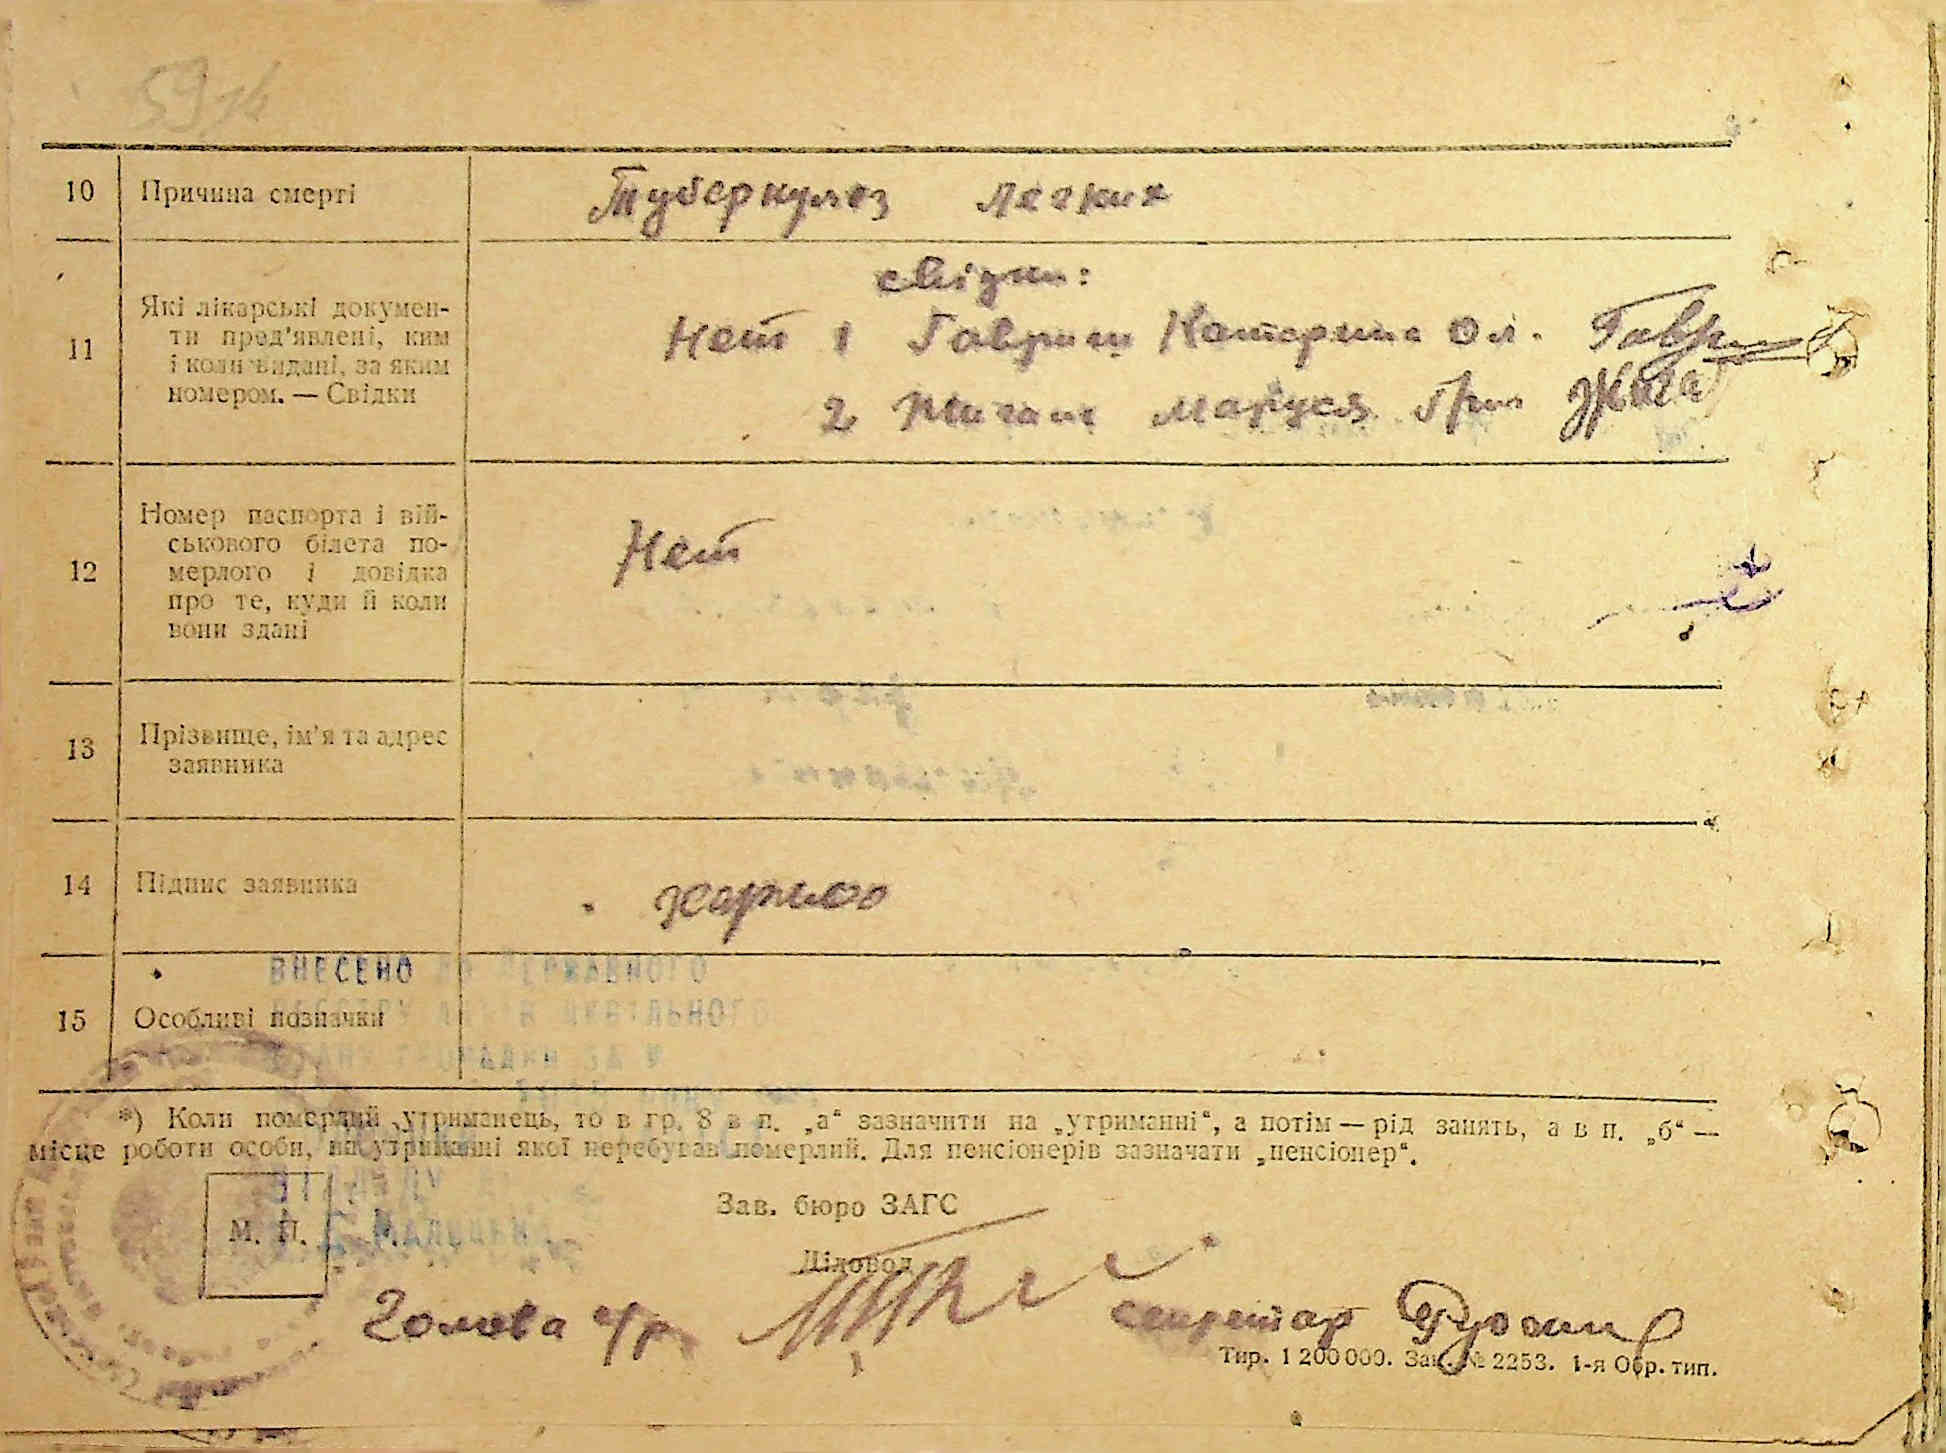 5914
10 Причина смерті Туберкулоз легких
11 Які лікарські докумен-
ти пред'явлені, ким
і коли видані, за яким
номером. — Свідки
свідки:
Нет 1 Гавриш Катерина Ол. Гавр
2 Маруся Гри
12 Номер паспорта і вій-
ськового білета по-
мерлого і довідка
про те, куди й коли
вони здані
Нет
13 Прізвище, ім'я та адрес
заявника
14 Підпис заявника
15 Особливі позначки
ВНЕСЕНО ДО ДЕРЖАВНОГО
РЕЄСТРУ АКТІВ ЦИВІЛЬНОГО
СТАНУ ГРОМАДЯН ЗА №
*) Коли померлий утриманець, то в гр. 8 в п. „а“ зазначити на „утриманні“, а потім — рід занять, а в п. „б“ —
місце роботи особи, на утриманні якої перебував померлий. Для пенсіонерів зазначати „пенсіонер“.
М. П.
Зав. бюро ЗАГС
Діловод
Голова с/р секретар
Тир. 1 200 000. Зак. № 2253. 1-я Обр. тип.